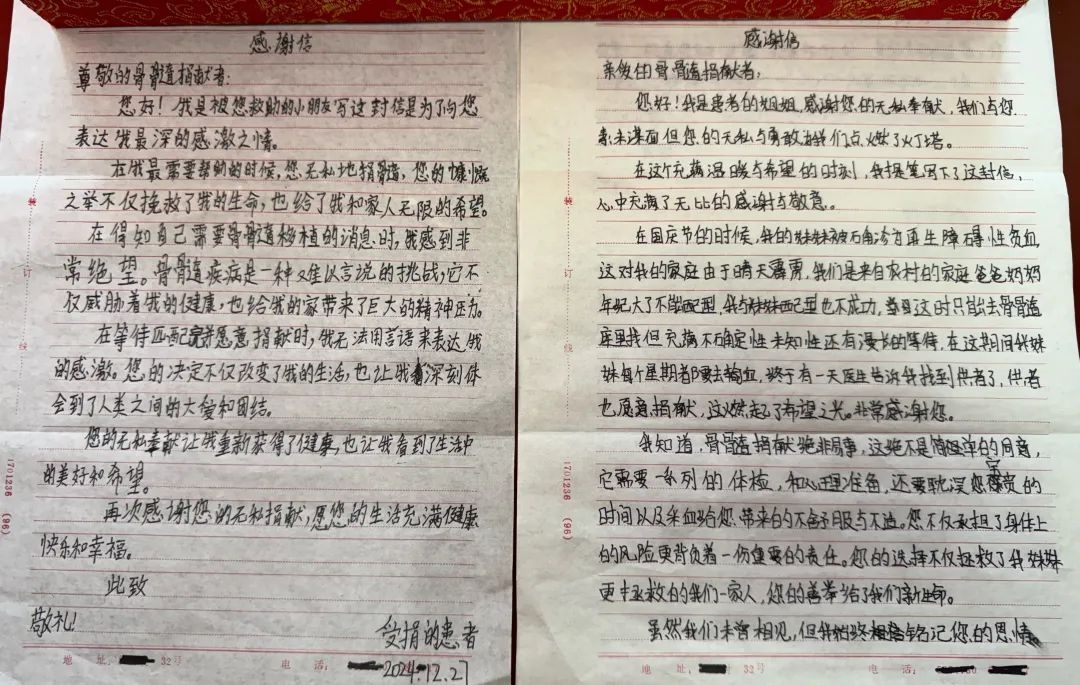 感谢信
尊敬的骨髓捐献者:
您好!我是被您救助的小朋友写这封信是为了向您
表达我最深的感激之情。
在我最需要帮助的时候,您无私地捐骨髓,您的慷慨
之举不仅挽救了我的生命,也给了我和家人无限的希望。
在得知自己需要骨髓移植的消息时,我感到非
常绝望。骨髓疾病是一种难以言说的挑战,它不
仅威胁着我的健康,也给我的家带来了巨大的精神压力。
在等待匹配并愿意捐献时,我无法用言语来表达我
的感激。您的决定不仅改变了我的生活,也让我深刻体
会到了人类之间的大爱和团结。
您的无私奉献让我重新获得了健康,也让我看到了生活中
的美好和希望。
再次感谢您的无私捐献,愿您的生活充满健康
快乐和幸福。
此致
敬礼!
受捐的患者
2024.12.27
地 址: 32号 电 话:
装
订
线
1701236 (96)
感谢信
亲爱的骨髓捐献者:
您好!我是患者的姐姐,感谢您的无私奉献,我们与您
素未谋面但您的无私与勇敢为我们点燃了灯塔。
在这个充满温暖与希望的时刻,我提笔写下了这封信,
心中充满了无比的感谢与敬意。
在国庆节的时候,我的妹妹被确诊为再生障碍性贫血
这对我的家庭由于晴天霹雳,我们是来自农村的家庭爸爸妈妈
年纪大了不能配型,我与妹妹配型也不成功,当时这时只能去骨髓
库里找但充满不确定性未知性还有漫长的等待,在这期间我妹
妹每个星期都要去输血,终于有一天医生告诉我找到供者了,供者
也愿意捐献,这燃起了希望之光。非常感谢您。
我知道,骨髓捐献绝非易事,这绝不是简单的同意,
它需要一系列的体检,和心理准备,还要耽误您宝贵的
时间以及采血给您带来的不舒服与不适。您不仅承担了身体上
的风险更背负着一份重要的责任。您的选择不仅拯救了我妹妹
更拯救的我们一家人,您的善举给了我们新生命。
虽然我们未曾相见,但我始终铭记您的恩情
地 址: 32号 电 话:
装
订
线
1701236 (96)